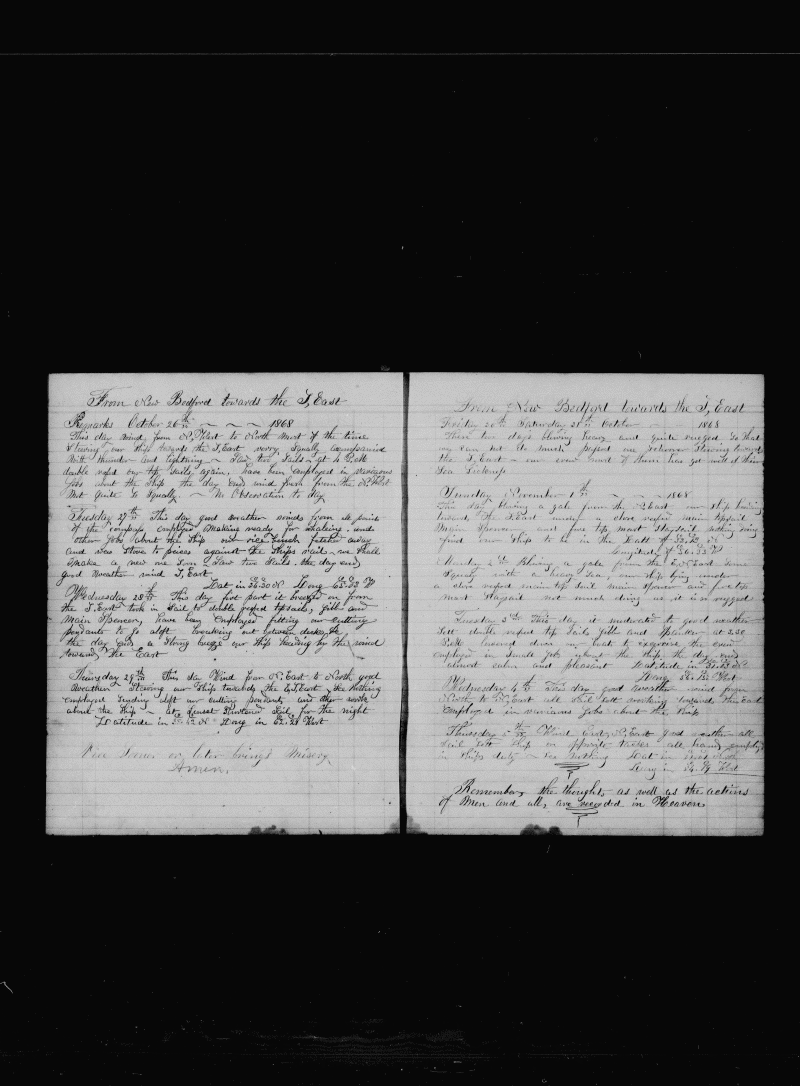 From New Bedford towards the S, East
Remarks October 26th ~ ~ ~ 1868
This day wind from N, West to North most of the time
Steering our Ship towards the S, East very Squally accompanied
With thunder and lightning ~ Saw two Sails ~ at 4 P.M
double reefed our top Sails again, have been employed in
Jobs about the Ship the day ends wind from the N, West
Not quite So Squally ~ No Observation to day
Tuesday 27th This day good weather winds from all points
of the compass employed Making ready for whaling and
other Jobs about the Ship our vice bench fetched away
and was Stove to pieces against the Ships rail we Shall
Make a new one Soon Saw two Sails the day ends
good Weather wind S, East
Lat in 36-30 N Long 63-32 W
Wednesday 28th This day first part it breezed on from
the S.East took in Sail to double reefed topsails, Jibb and
Main Spencer, have been Employed fitting our Cutting
pendants to go aloft breaking out between decks &c
the day ends a Strong breeze our Ship heading by the wind
toward the East
Thursday 29th This da Wind from N. East to North good
Weather Steering our Ship towards the E,S,East the Nothing
employed Sending aloft our Cutting pendants and other works
about the Ship ~ at Sunset Shortened Sail for the night
Latitude in N Long in West
Vice Sooner or later brings Misery
Amen.
From New Bedford towards the S, East
Friday Saturday 31st October 1868
These two days blowing heavy and quite rugged So that
we can not do much
the S, East ~ our men most of them has got well of their
Sea Sickness
Sunday November 1st ~ ~ ~ 1868
This day blowing a gale from the N.East our Ship heading
toward the S,East under a close reefed main topsail
Main Spencer and fore top mast Staysail
find our Ship to be in the Latt of N
Longitude of W
Monday 2nd Blowing a gale from the E.N.East Some
Squaly with a heavy Sea, our Ship lying under
a close reefed main top Sail main Spencer and fore top
mast Staysail not much doing as it is So rugged
Tuesday 3rd This day it moderated to good weather
Sett double reefed top Sails Jibb and Spanker at 3,30
P.M lowered down a boat to exercise the crew
employed in Small Jobs about the Ship the day ends
almost calm and pleasant Latitude in N
Long West
Wednesday 4th This day good weather wind from
North to N.East all Sail Sett working toward the East
Employed in various Jobs about the Ship
Thursday 5th Wind East,N,East good weather all
Sail Sett Ship on opposite tacks all hands employ
in Ships duty See Nothing Latt in
Long in West
Remember, the thoughts as well as the actions
of Men and all, are recorded in Heaven